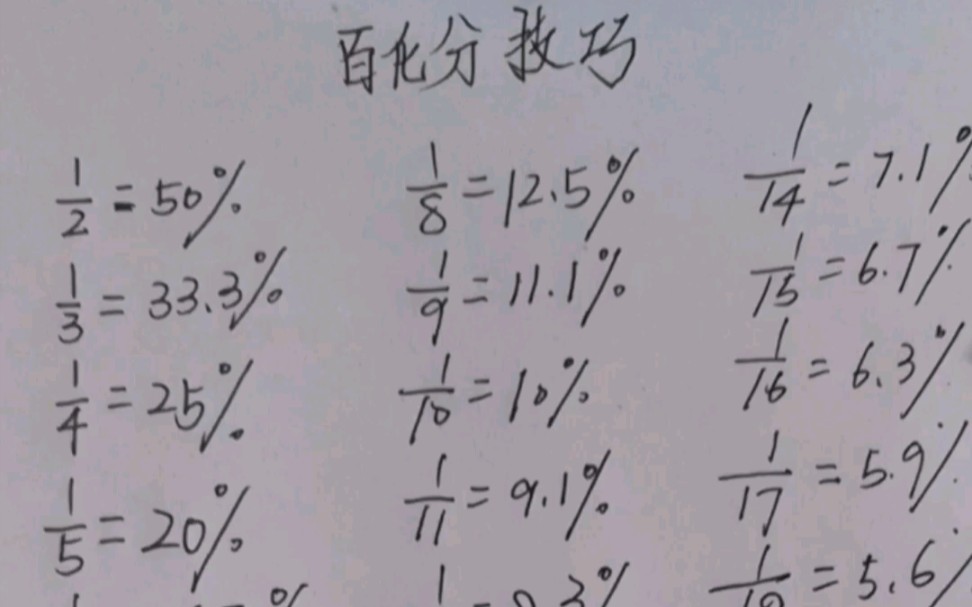 百化分技巧
1/2 = 50%
1/3 = 33.3%
1/4 = 25%
1/5 = 20%
1/8 = 12.5%
1/9 = 11.1%
1/10 = 10%
1/11 = 9.1%
1/14 = 7.1%
1/15 = 6.7%
1/16 = 6.3%
1/17 = 5.9%
= 5.6